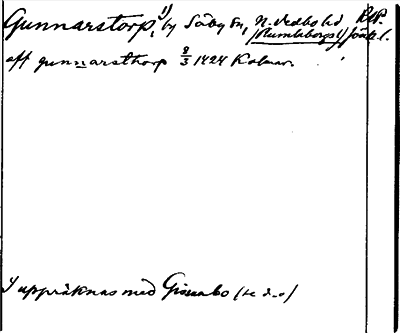 Gunnarstorp, 1) by Säby sn, N. Vedbo hd RAP.
(Rumlaborgs l) Jönk l.
aff gunnarsthorp 8/3 1424 Kalmar.
I uppräknas med Gissabo (se d.o)